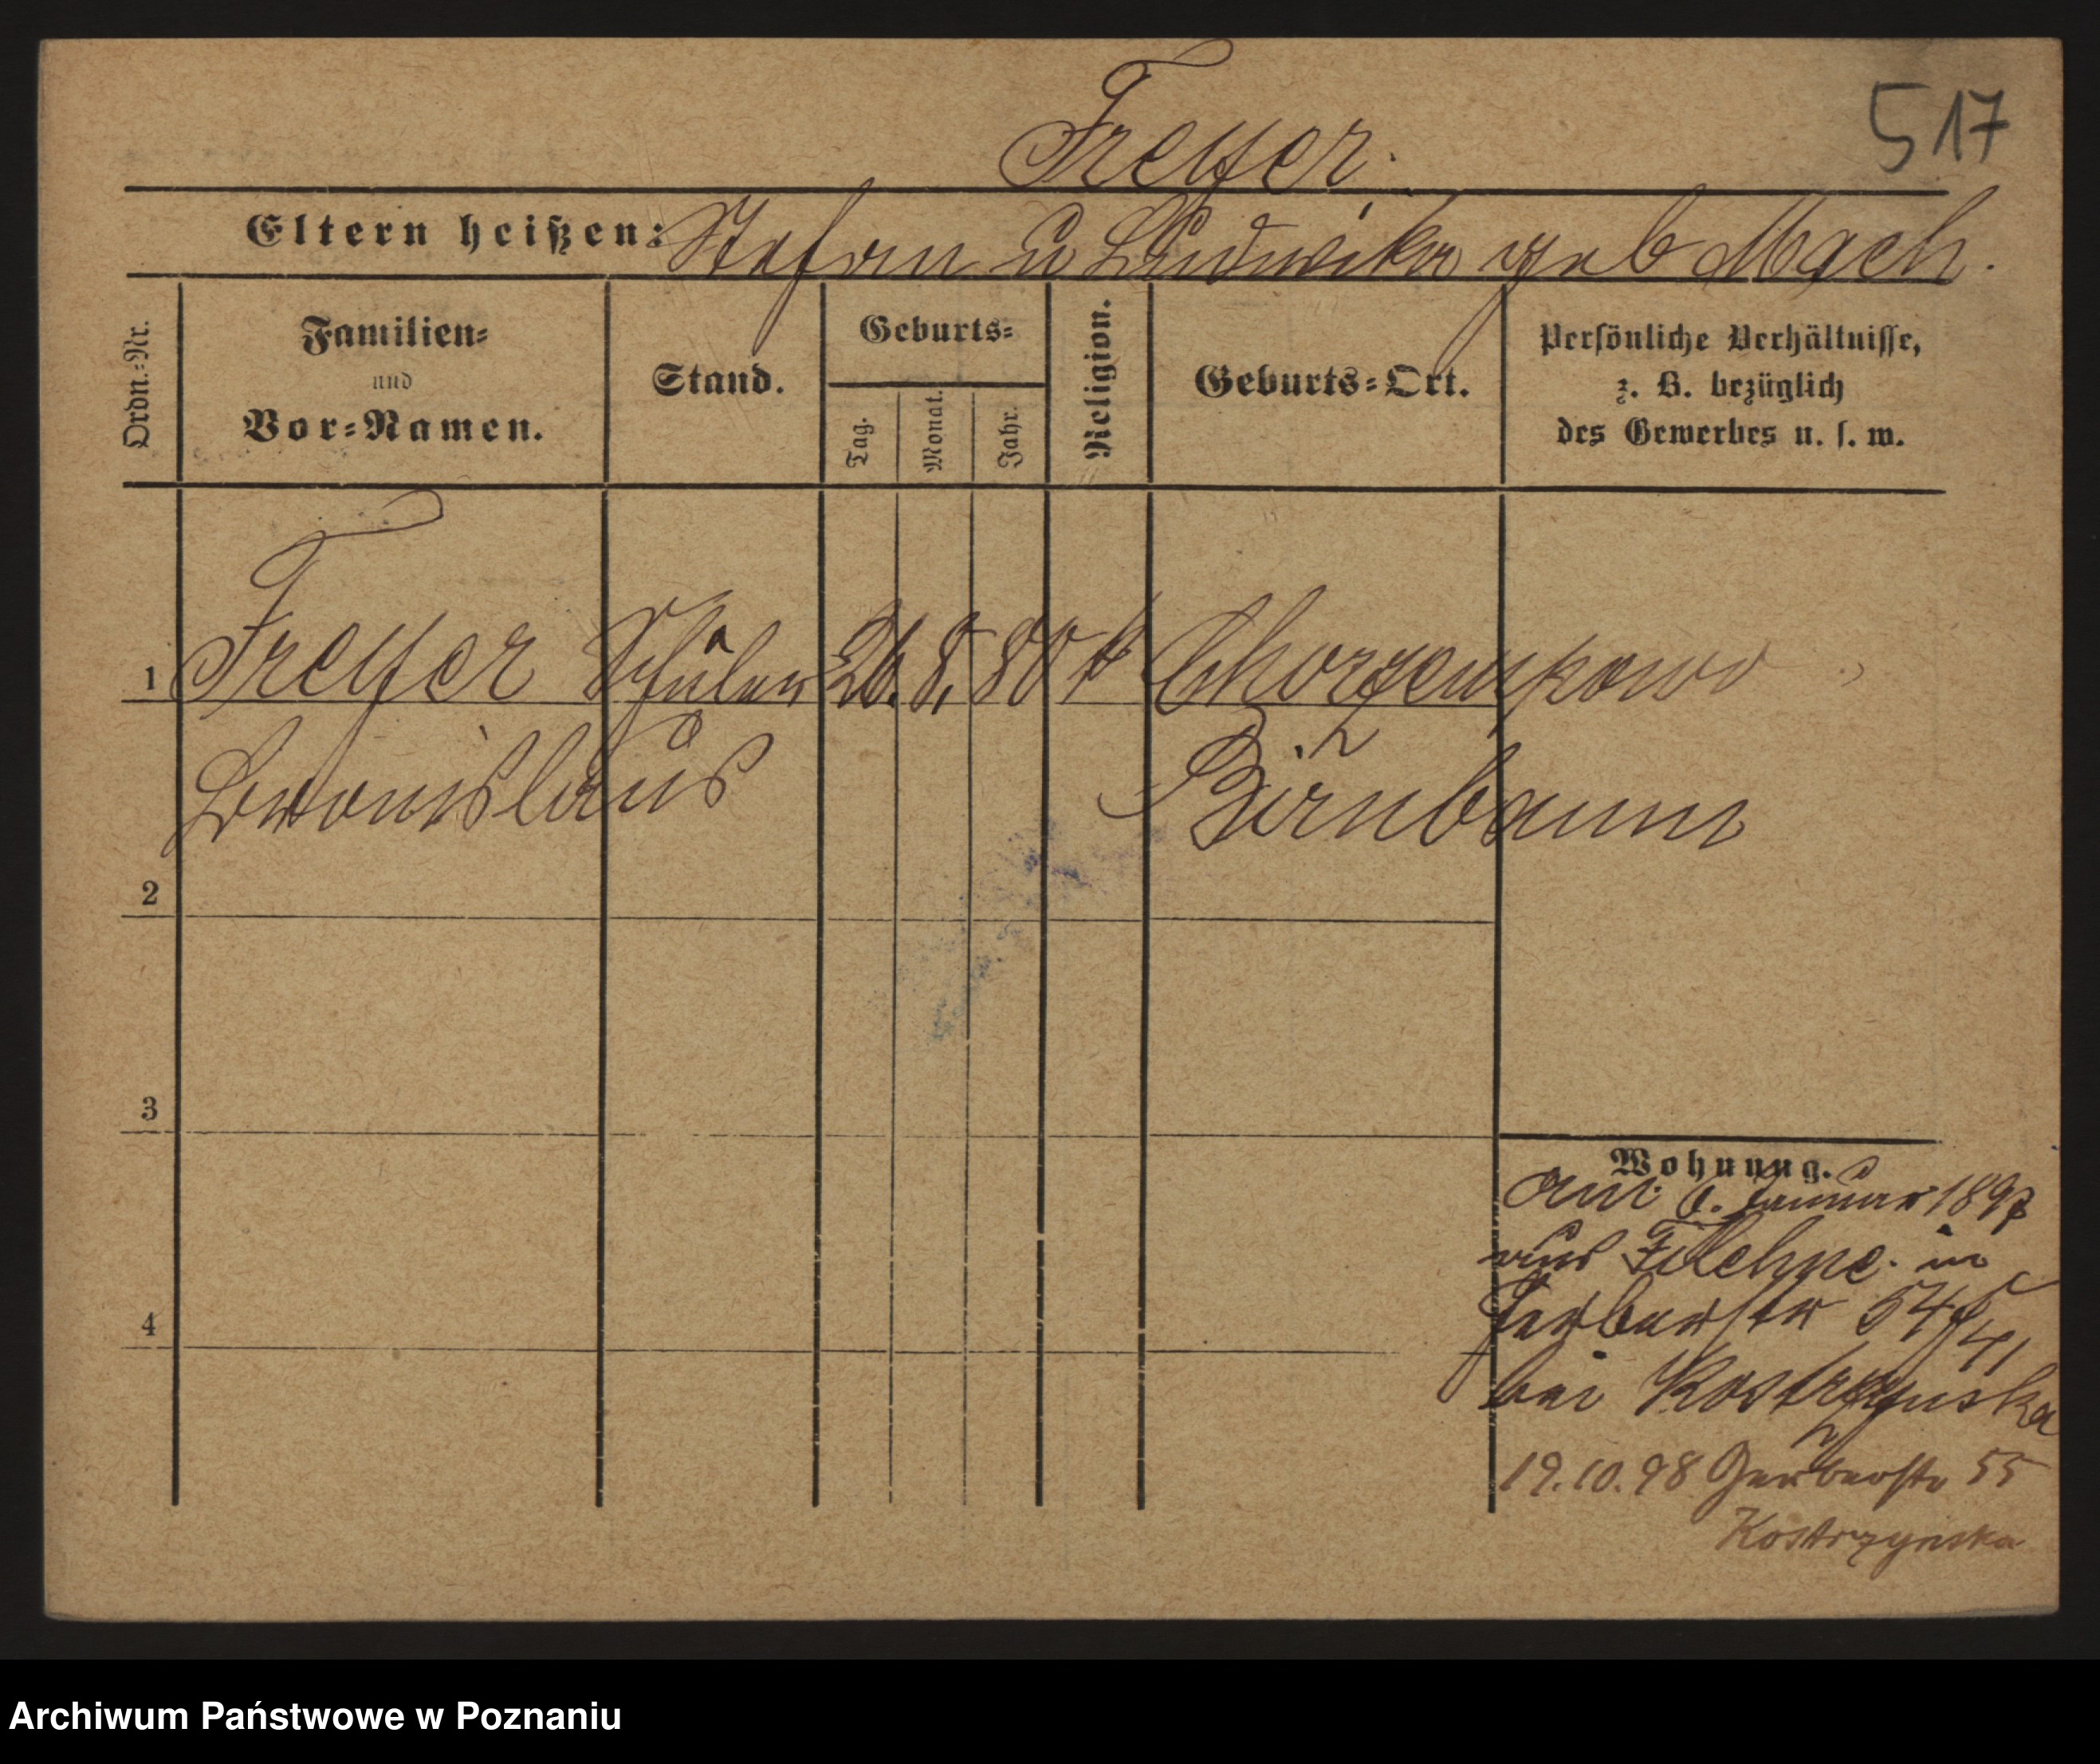 Freyer.
517
Eltern heißen: Stefan u Ludwika geb Mach.
Ordn.=Nr.
Familien=
und
Vor=Namen.
Stand.
Geburts=
Tag.
Monat.
Jahr.
Religion.
Geburts=Ort.
Persönliche Verhältnisse,
z. B. bezüglich
des Gewerbes u. s. w.
1 Freyer Schüler 26. 8. 80 k Chorzempowo
Bronislaus Birnbaum
2
3
4
Wohnung.
am 6. Januar 1897
aus Filehne in
Gerberstr 54
bei Kostrzynska
19.10.98 Gerberstr 55
Kostrzynska
Archiwum Państwowe w Poznaniu